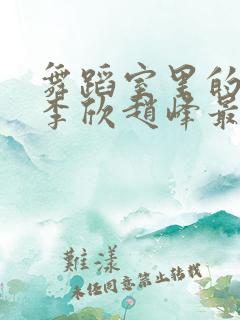 舞蹈室里的
李欣赵峰最
难漾
未经同意禁止转载